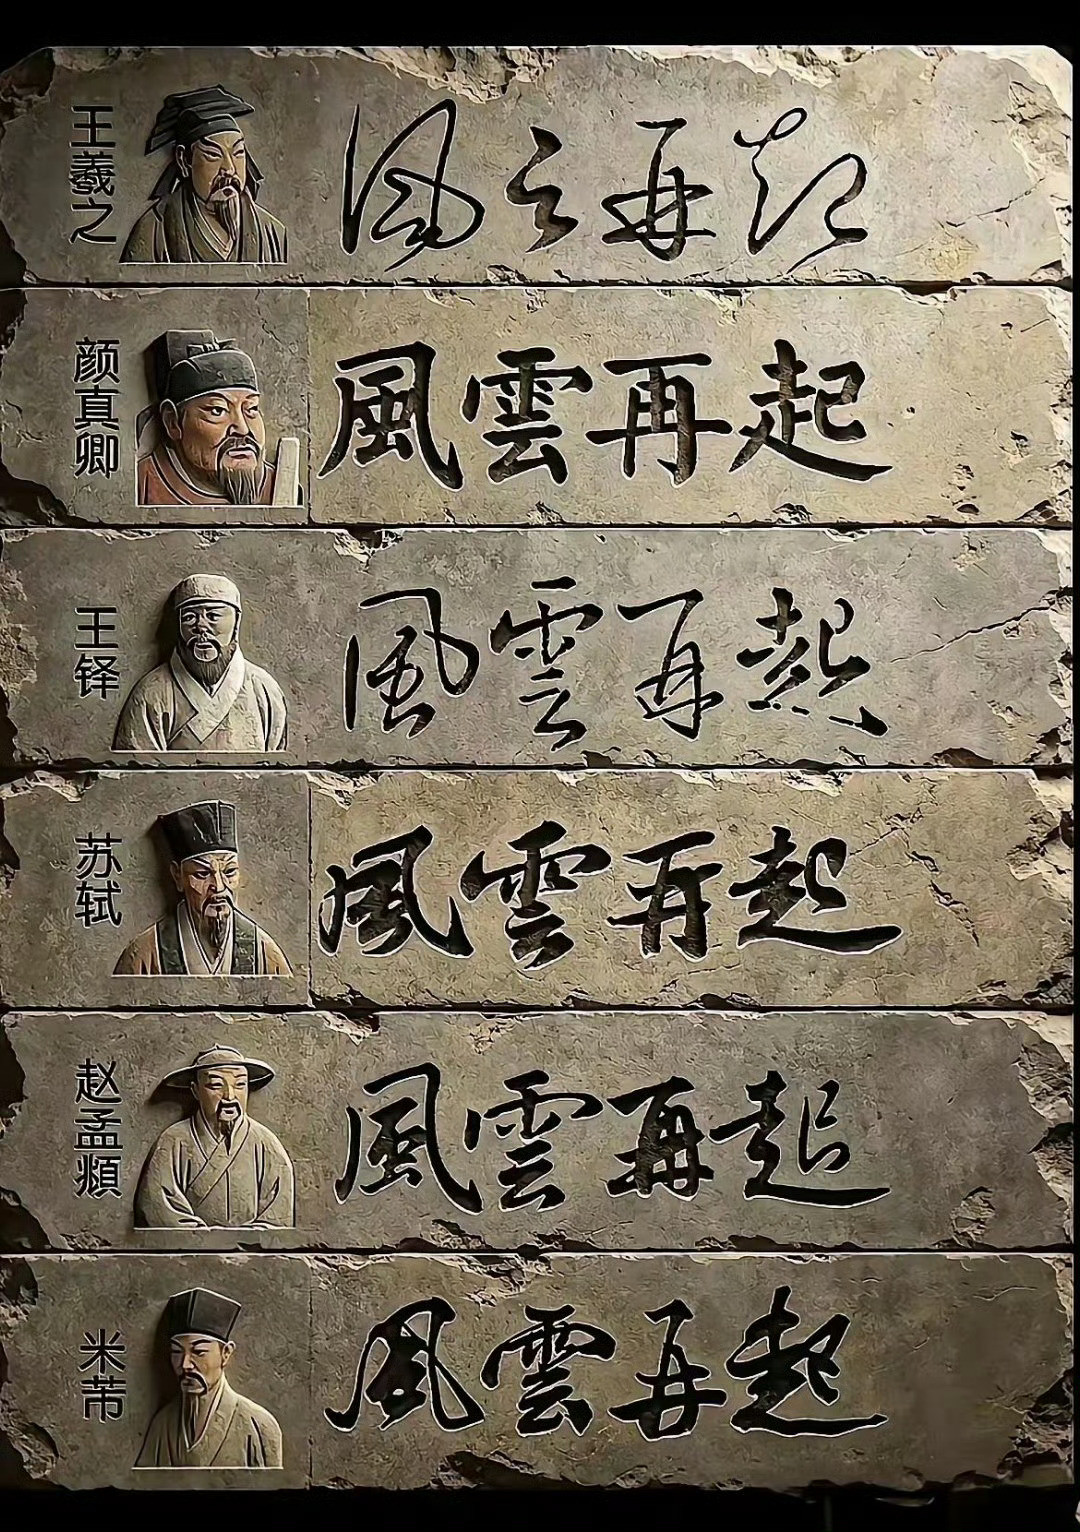 王羲之
风云再起
颜真卿
風雲再起
王铎
風雲再起
苏轼
風雲再起
赵孟頫
風雲再起
米芾
風雲再起